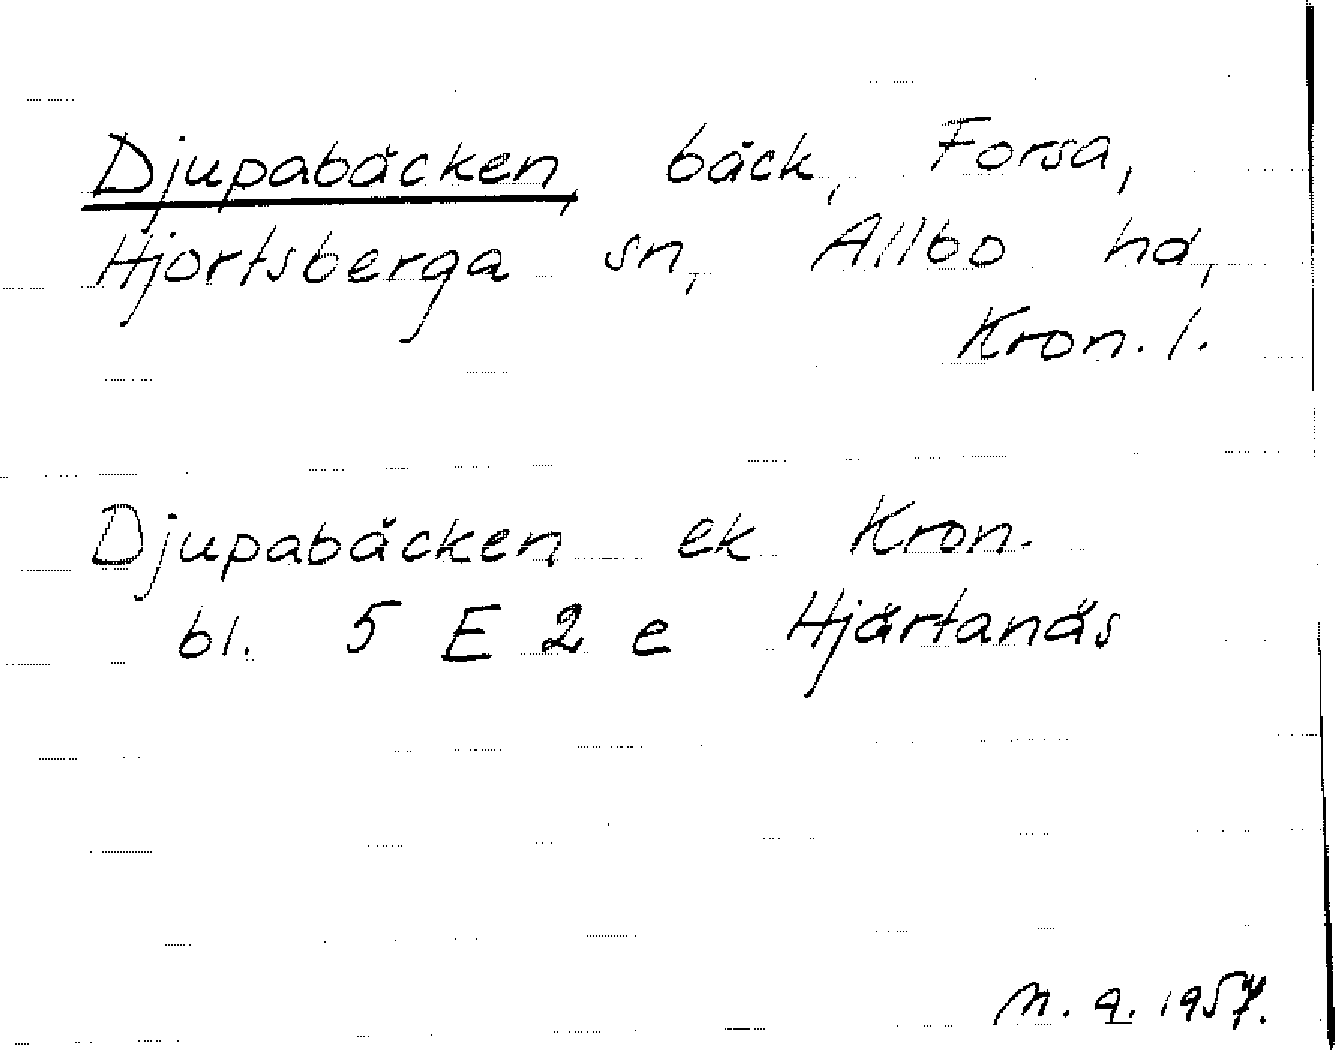 Djupabäcken, bäck, Forsa,
Hjortsberga sn, Allbo hd,
Kron. l.
Djupabäcken ek Kron.
bl. 5 E 2 e Hjärtanäs
M. A. 1957.